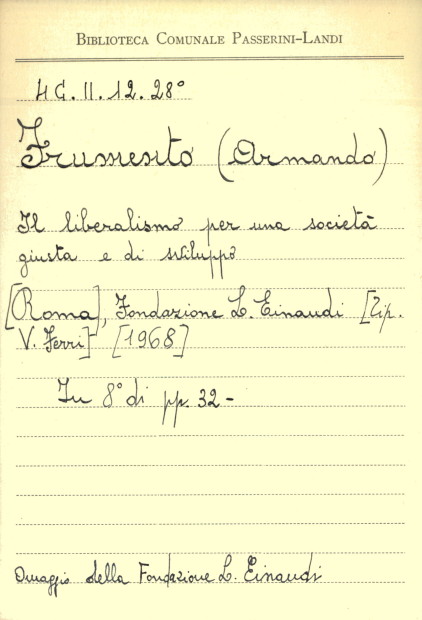 BIBLIOTECA COMUNALE PASSERINI-LANDI
4G.II.12.28°
Frumento (Armando)
Il liberalismo per una società
giusta e di sviluppo
[Roma], Fondazione L. Einaudi [Tip.
V. Ferri] [1968]
In 8° di pp. 32-
Omaggio della Fondazione L. Einaudi